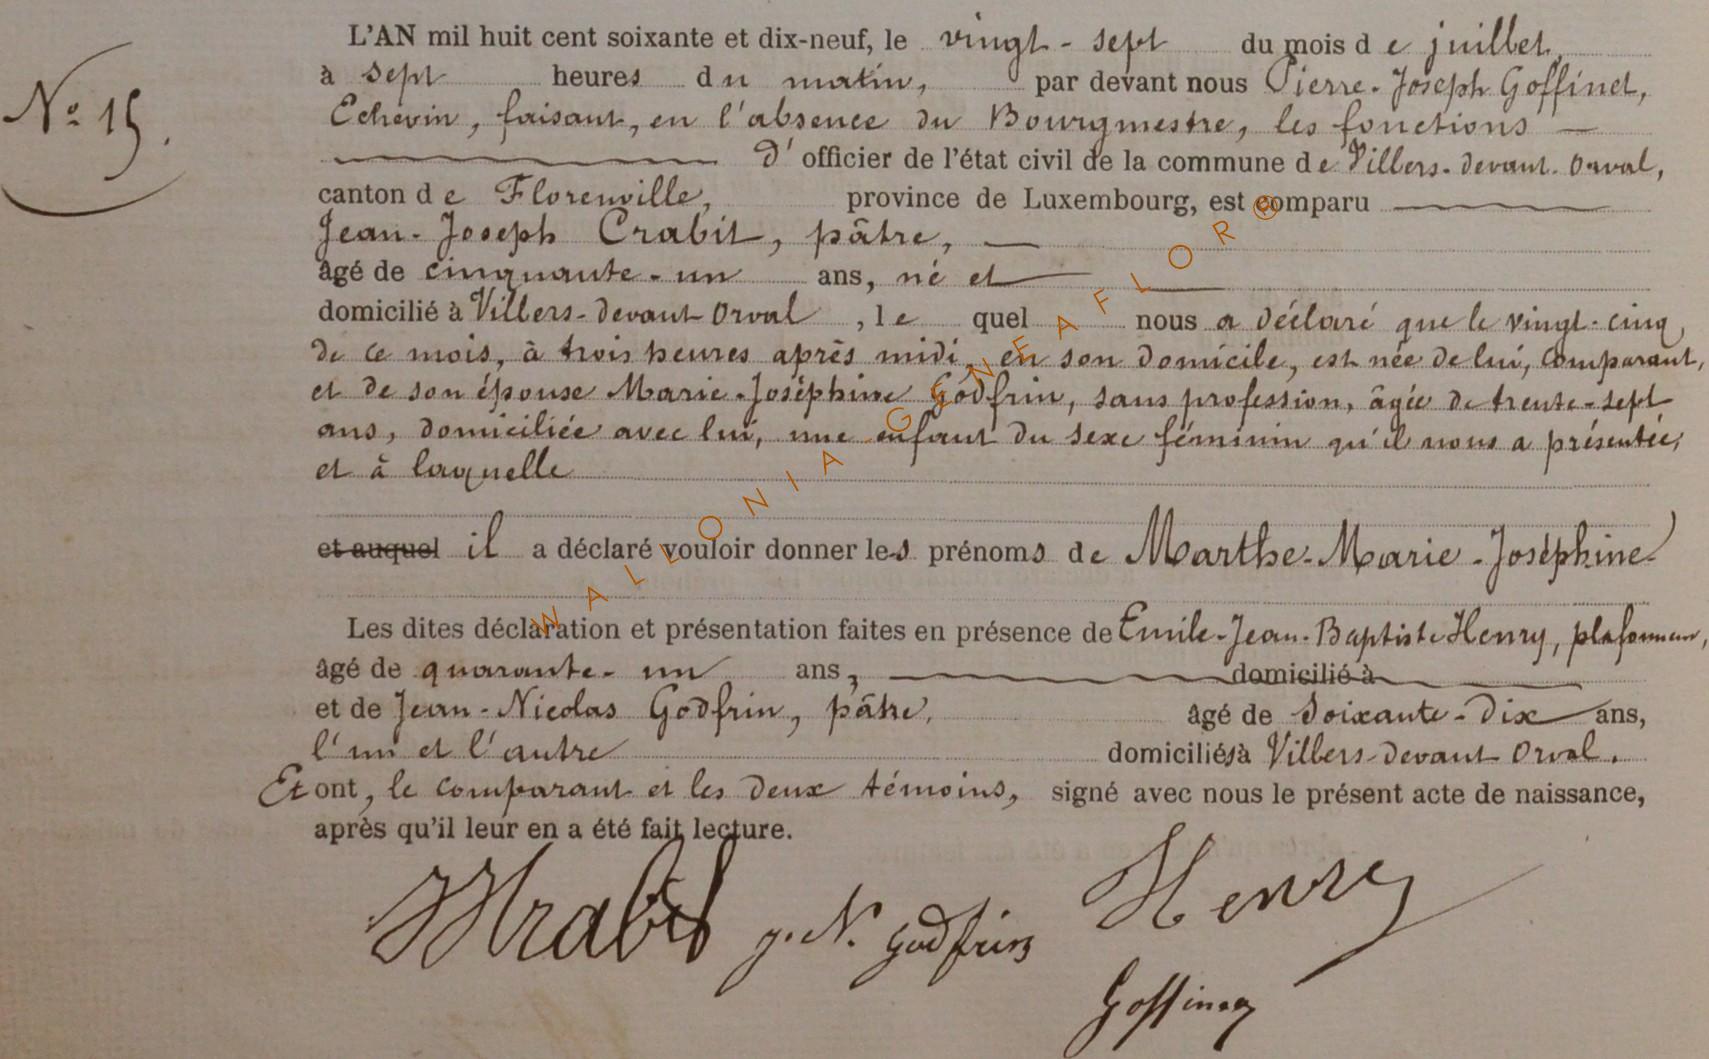 L'AN mil huit cent soixante et dix-neuf, le vingt-sept du mois de juillet,
à sept heures du matin, par devant nous Pierre-Joseph Goffinet,
Nº 15.
Echevin, faisant, en l'absence du Bourgmestre, les fonctions —
d'officier de l'état civil de la commune de Villers-devant-Orval,
canton de Florenville, province de Luxembourg, est comparu
Jean-Joseph Crabit, pâtre, —
âgé de cinquante-un ans, né et
domicilié à Villers-devant-Orval, lequel nous a déclaré que le vingt-cinq
de ce mois, à trois heures après midi, en son domicile, est née de lui, comparant,
et de son épouse Marie-Joséphine Godfrin, sans profession, âgée de trente-sept
ans, domiciliée avec lui, une enfant du sexe féminin qu'il nous a présentée,
et à laquelle
et auquel il a déclaré vouloir donner les prénoms de Marthe-Marie-Joséphine
Les dites déclaration et présentation faites en présence de Emile-Jean-Baptiste Henry, plafonneur,
âgé de quarante-un ans, domicilié à
et de Jean-Nicolas Godfrin, pâtre, âgé de soixante-dix ans,
l'un et l'autre domiciliés à Villers-devant-Orval.
Et ont, le comparant et les deux témoins, signé avec nous le présent acte de naissance,
après qu'il leur en a été fait lecture.
Crabit J. N. Godfrin Henry
Goffinet
WALLONIA GENEAFLOR®